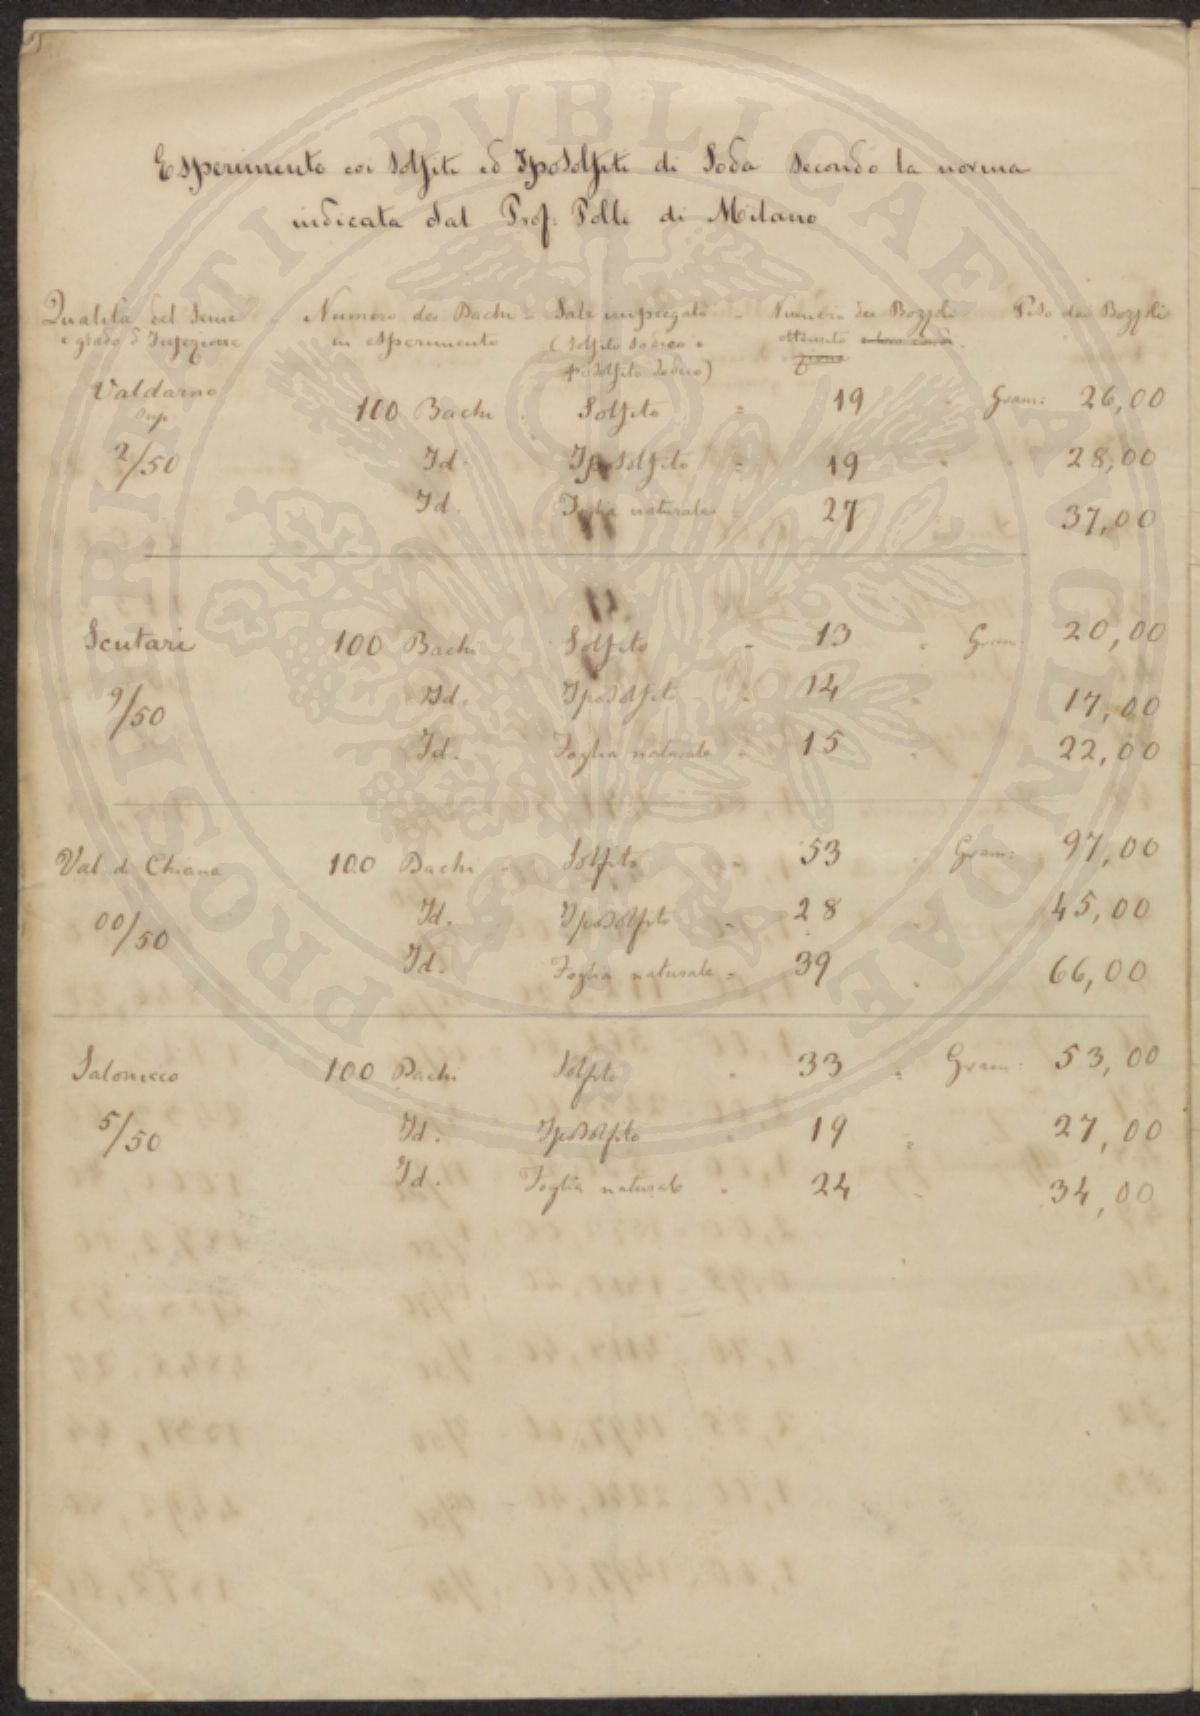 Esperimento coi Solfiti ed Iposolfiti di Soda secondo la norma
indicata dal Prof. Polli di Milano
Qualità del Seme - Numero dei Bachi - Sale impiegato - Numero dei Bozzoli Peso dei Bozzoli
e grado d'Infezione in esperimento (Solfito Sodico o ottenuto
Iposolfito Sodico)
Valdarno
Sup. 100 Bachi Solfito = 19 Gram: 26,00
2/50 Id. Iposolfito = 19 28,00
Id. Foglia naturale 27 37,00
Scutari 100 Bachi Solfito - 13 Gram: 20,00
9/50 Id. Iposolfito - 14 17,00
Id. Foglia naturale - 15 22,00
Val di Chiana 100 Bachi - Solfito - 53 Gram: 97,00
00/50 Id. Iposolfito - 28 45,00
Id. Foglia naturale - 39 66,00
Salonicco 100 Bachi Solfito 33 Gram: 53,00
5/50 Id. Iposolfito 19 27,00
Id. Foglia naturale 24 34,00
PROSPERITATI PUBLICAE AUGENDAE